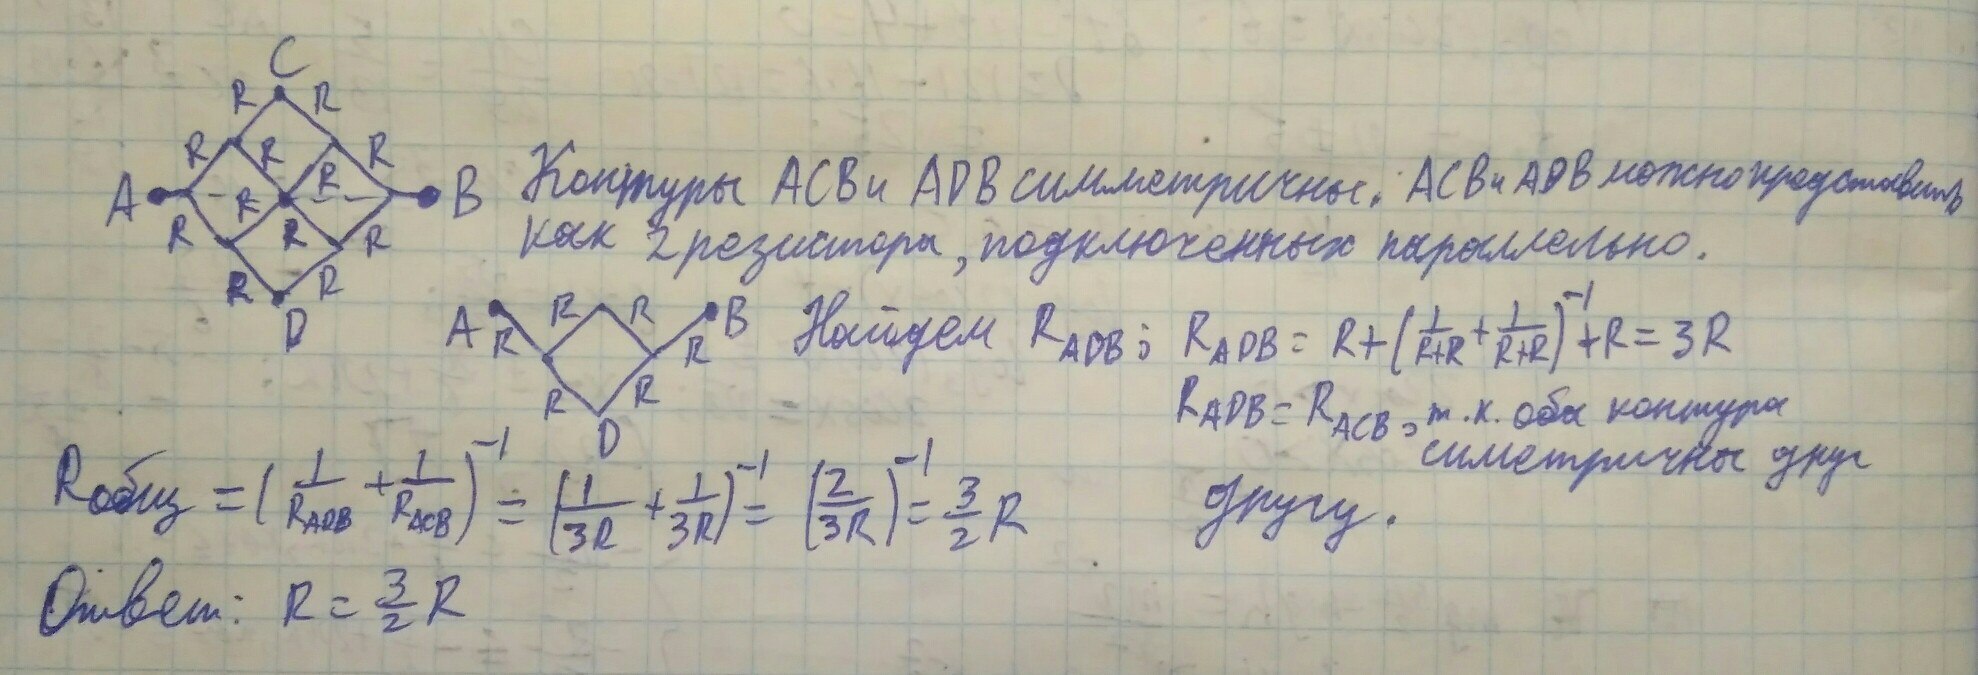 C
R R
R R R R
A R B
R R R R
R R
D
Контуры ACB и ADB симметричны. ACB и ADB можно представить
как 2 резистора, подключенных параллельно.
A R R R R B
R R
D
Найдем R_ADB: R_ADB = R + (1/(R+R) + 1/(R+R))^-1 + R = 3R
R_ADB = R_ACB, т.к. оба контура
симетричны друг
другу.
R_общ = (1/R_ADB + 1/R_ACB)^-1 = (1/3R + 1/3R)^-1 = (2/3R)^-1 = 3/2 R
Ответ: R = 3/2 R